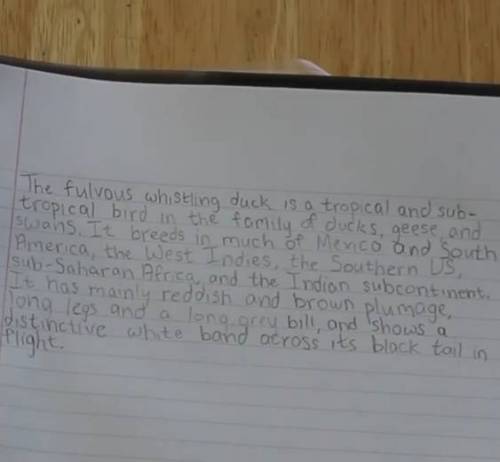 The fulvous whistling duck is a tropical and sub-
tropical bird in the family of ducks, geese and
swans. It breeds in much of Mexico and South
America, the West Indies, the Southern US,
sub-Saharan Africa, and the Indian subcontinent.
It has mainly reddish and brown plumage,
long legs and a long grey bill, and shows a
distinctive white band across its black tail in
flight.